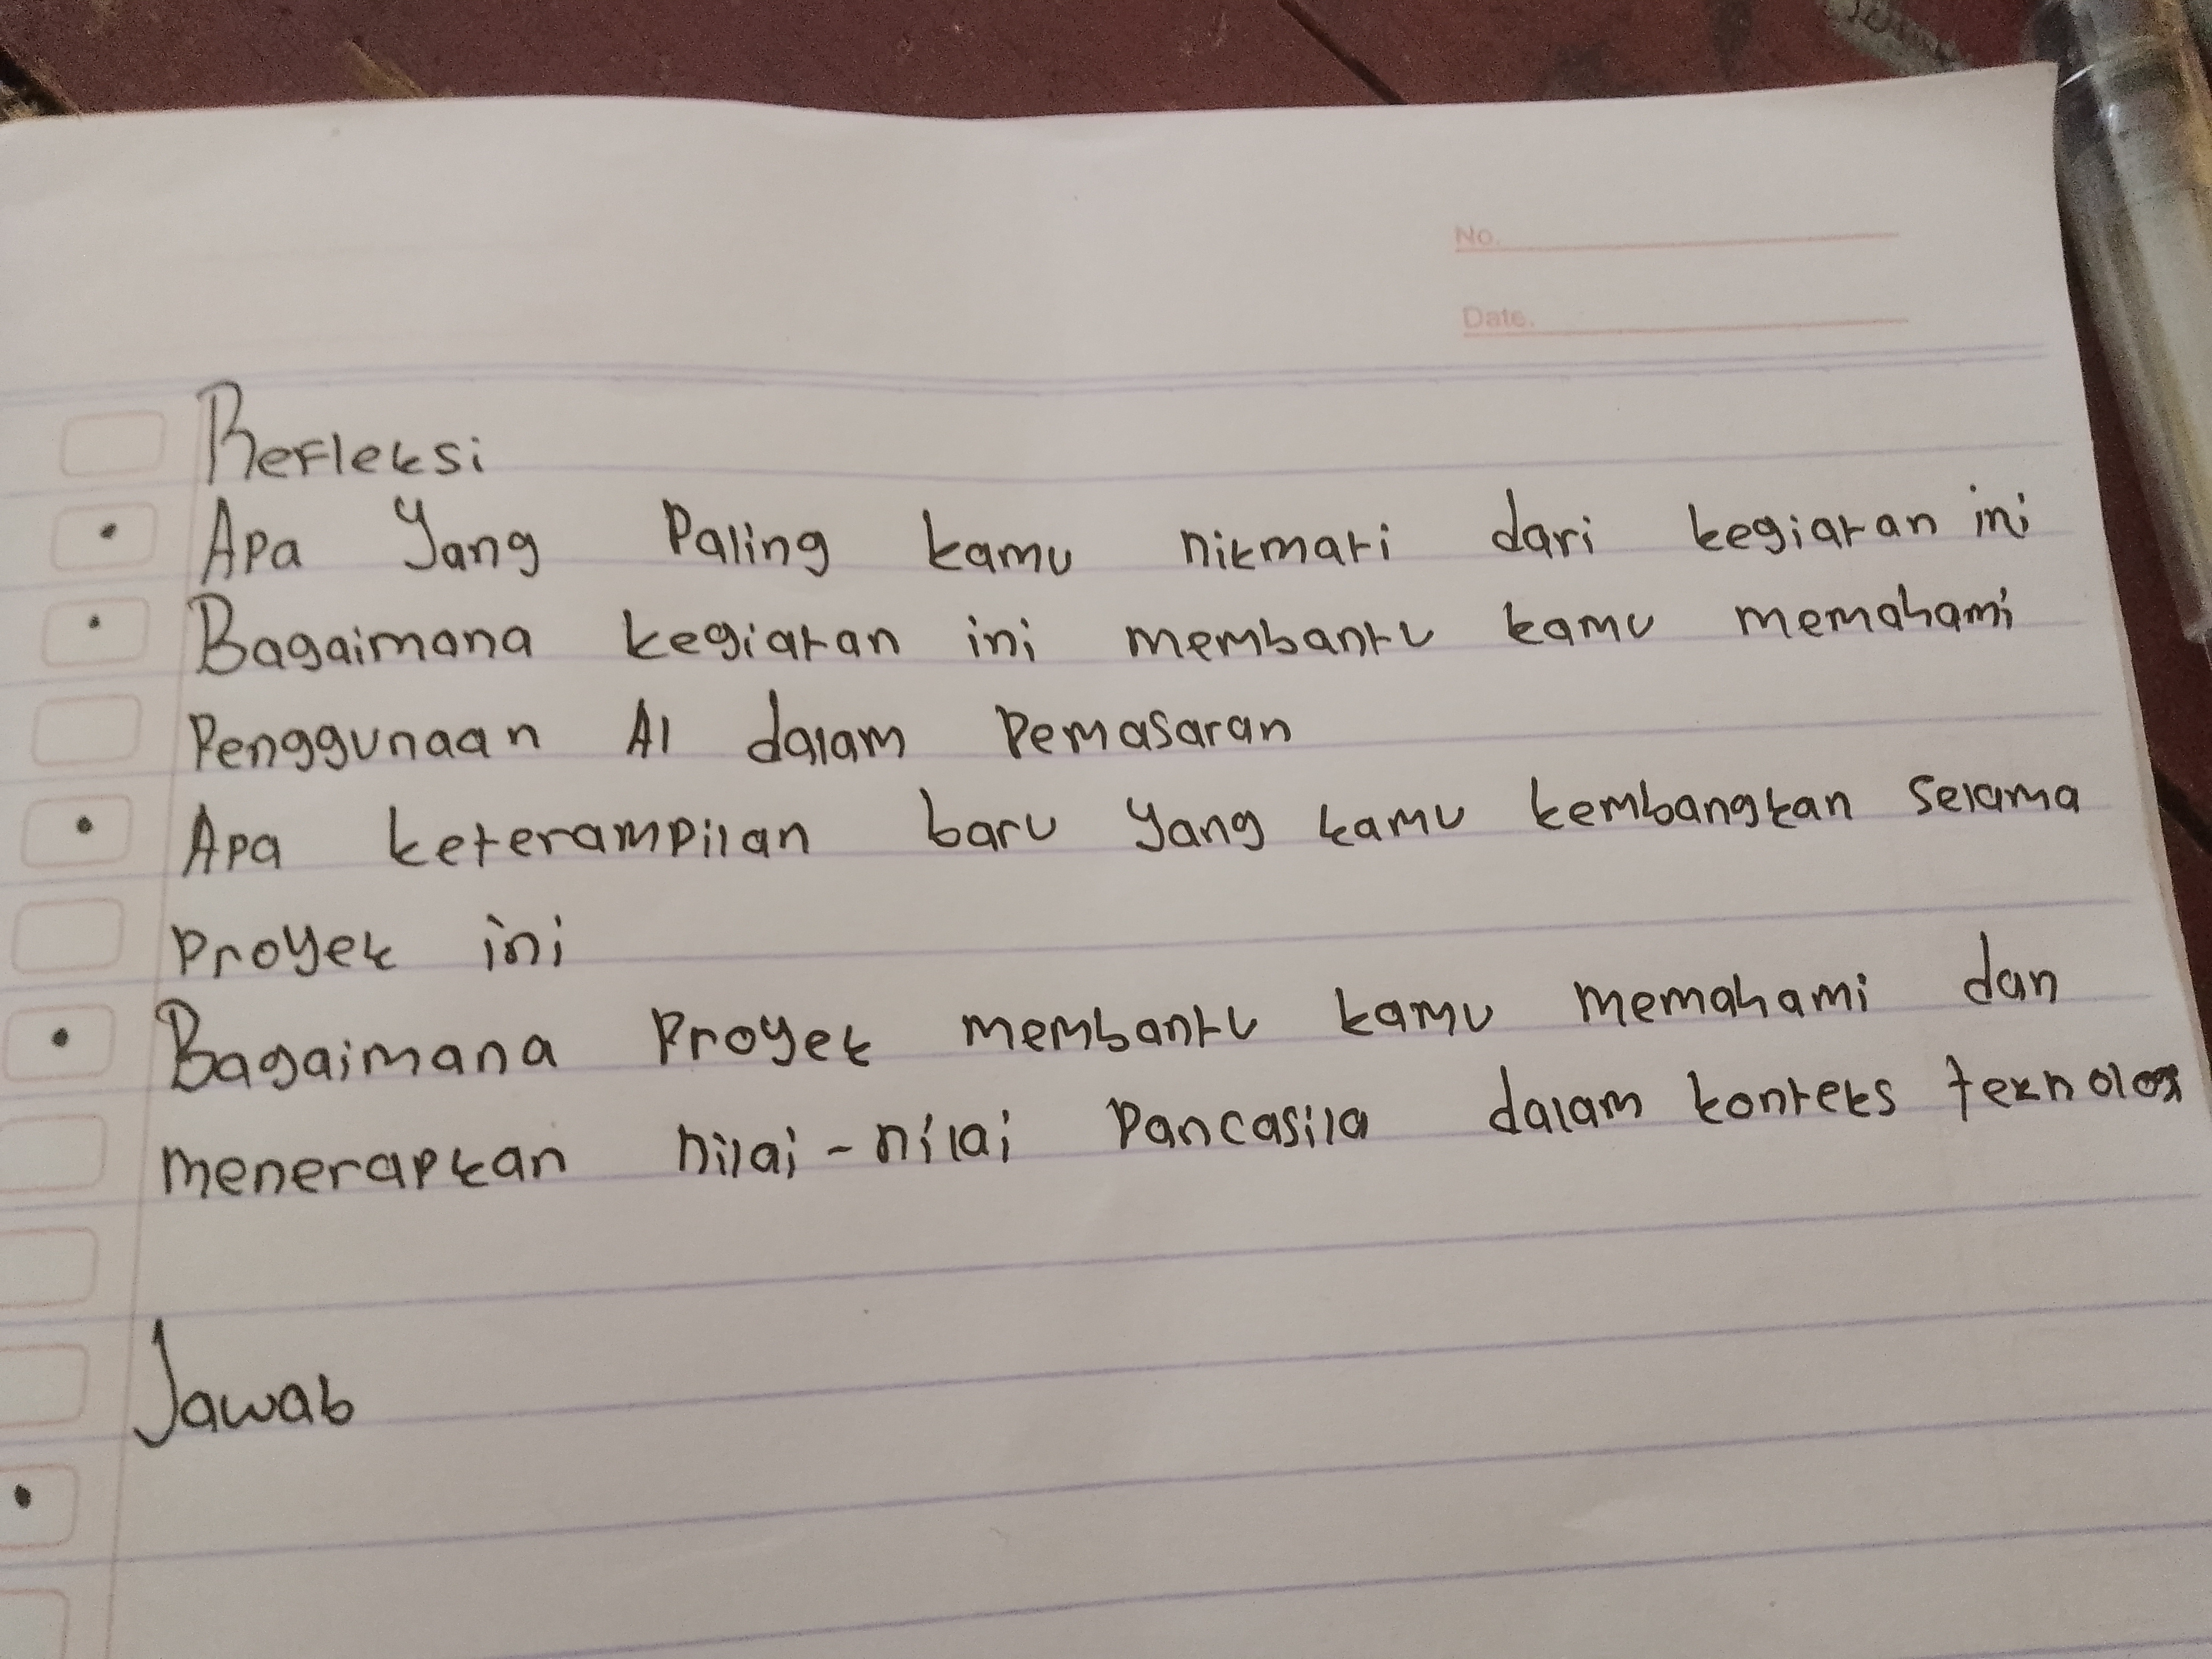 No.
Date.
Refleksi
• Apa Yang Paling kamu nikmati dari kegiatan ini
• Bagaimana kegiatan ini membantu kamu memahami
Penggunaan AI dalam Pemasaran
• Apa keterampilan baru yang kamu kembangkan selama
Proyek ini
• Bagaimana Proyek membantu kamu memahami dan
menerapkan nilai-nilai Pancasila dalam konteks
Jawab
•